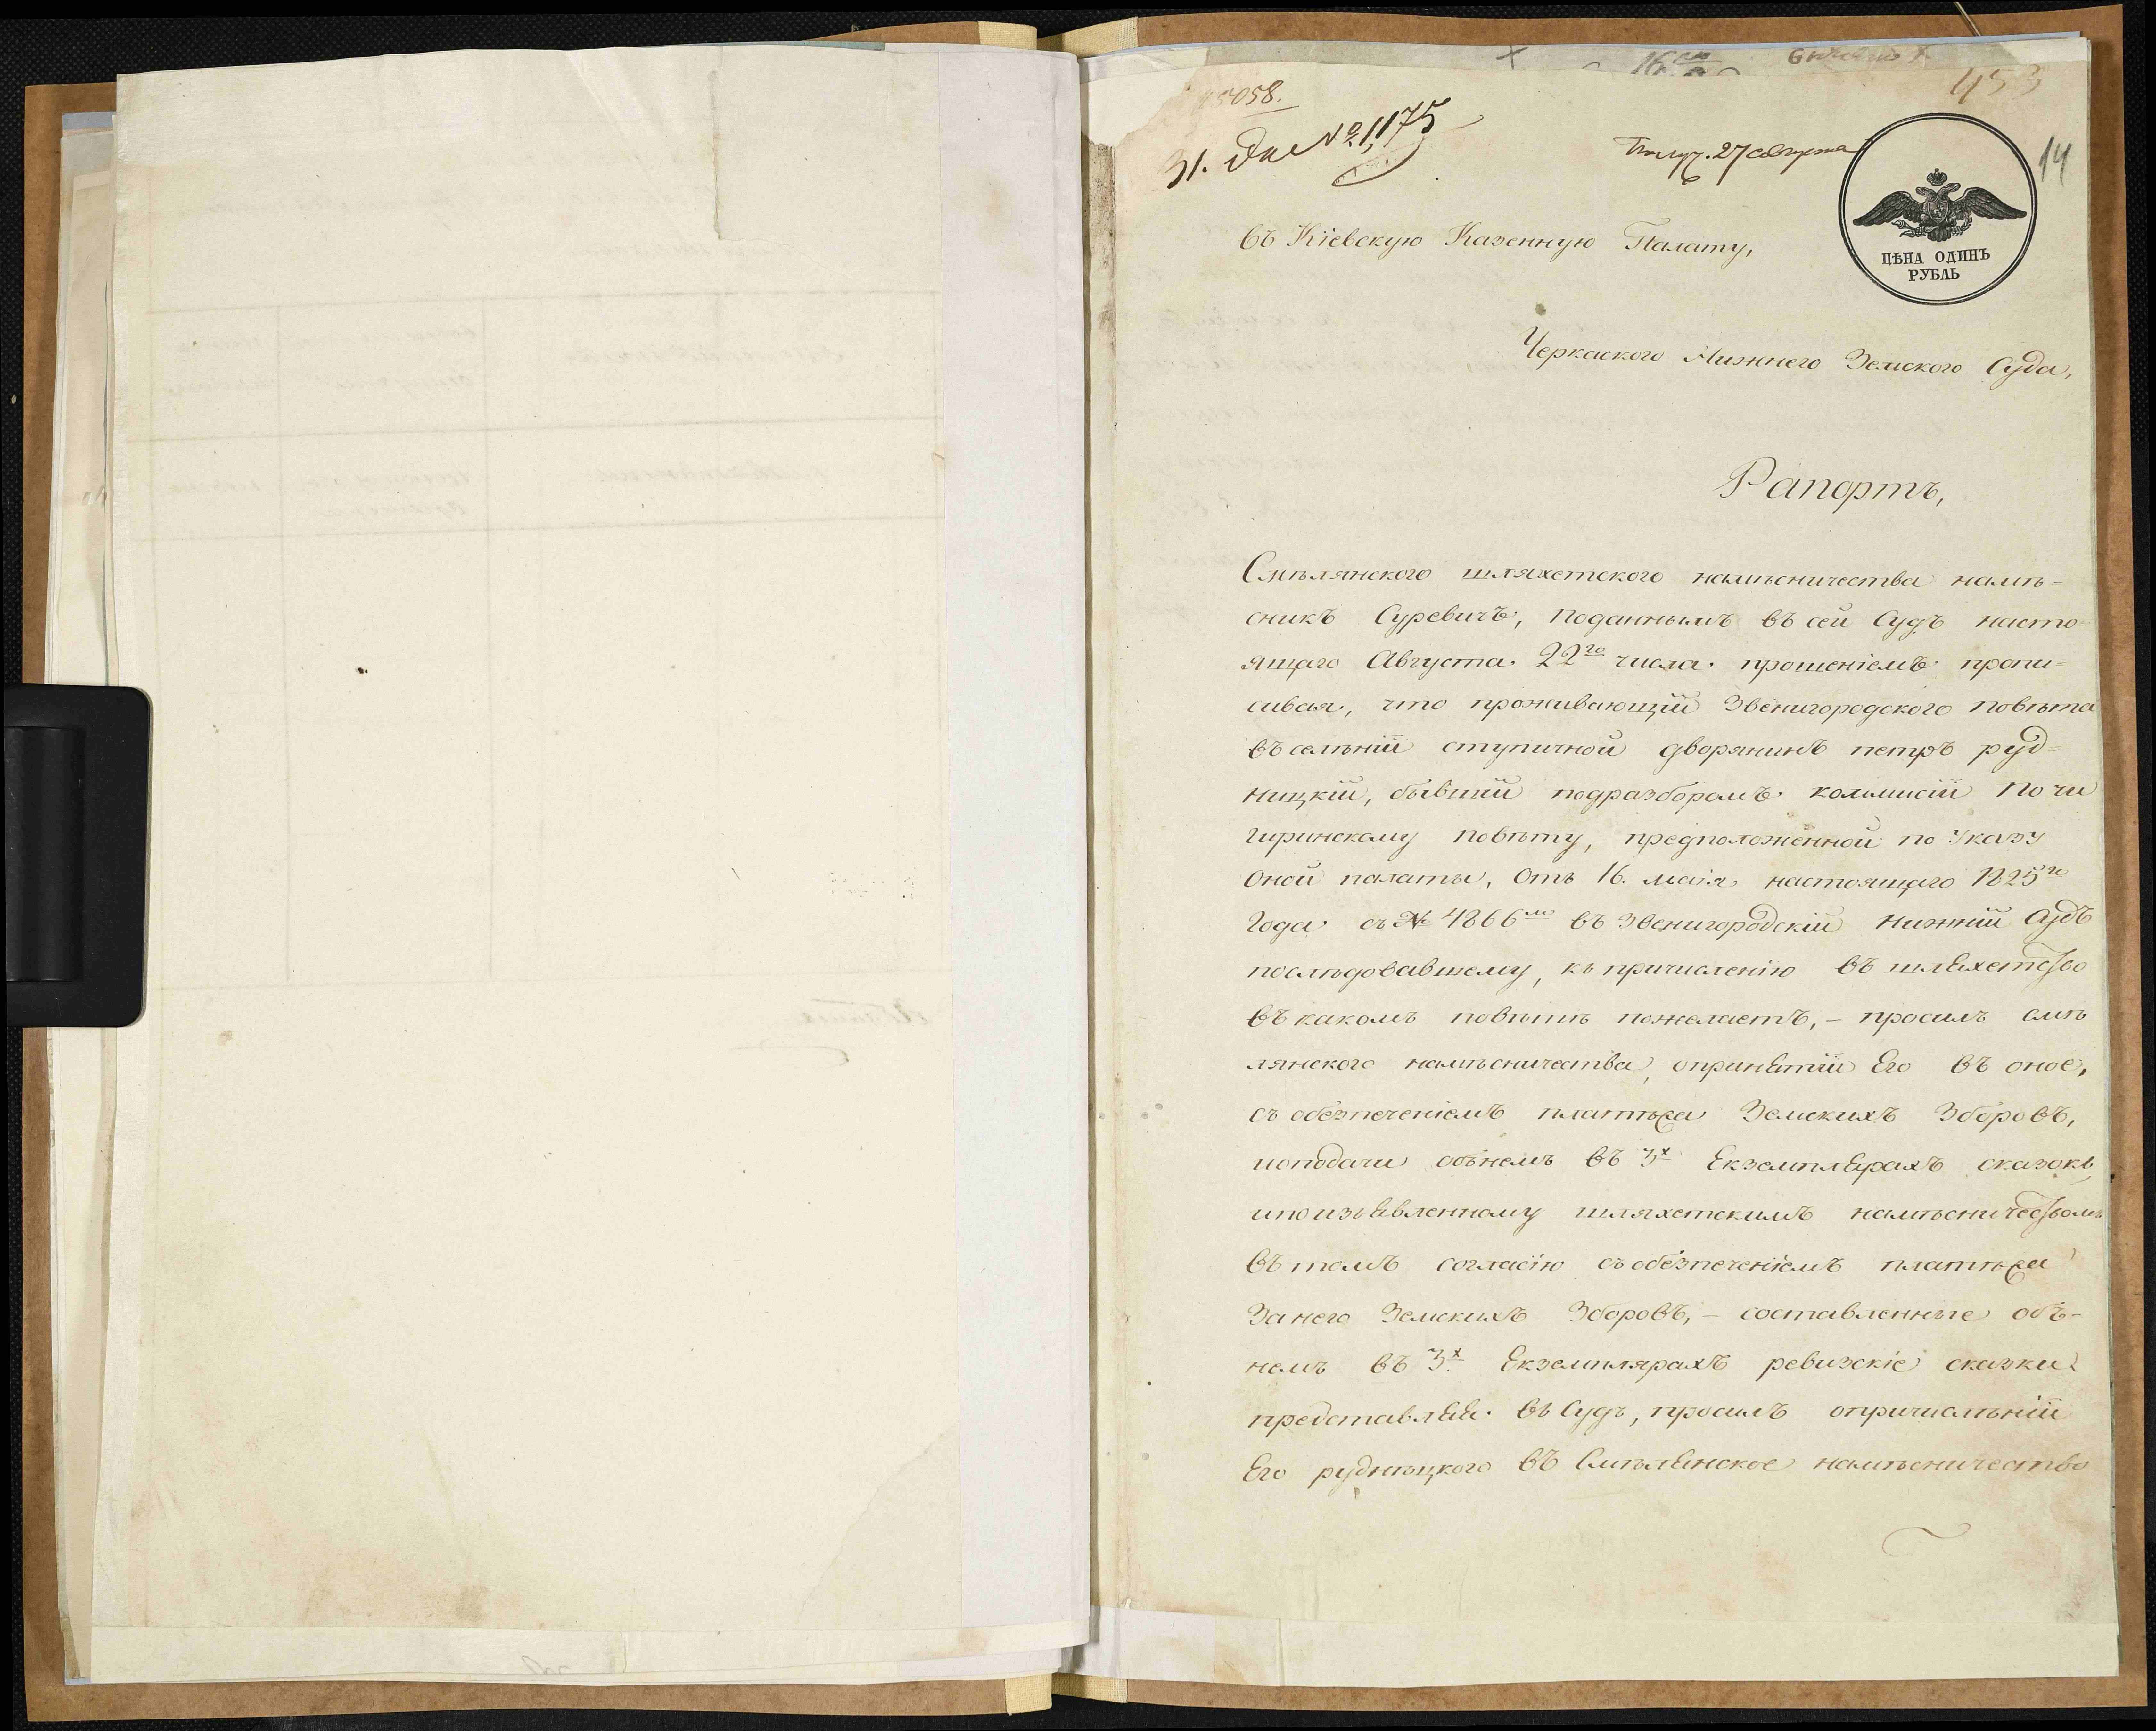 16
453
5058.
31. Дпе № 1,175
Получ. 27 августа
14
ЦѢНА ОДИНЪ
РУБЛЬ
Въ Кіевскую Казенную Палату,
Черкаского Нижнего Земского Суда,
Рапортъ,
Смѣлянского шляхетского намѣсничества намѣ-
сникъ Суревичъ, поданнымъ въ сей Судъ насто-
ящаго Августа 22го числа прошеніемъ пропи-
сивая, что проживающій Звенигородского повѣта
въ селѣніи ступичной дворянинъ петръ руд-
ницкій, бывшій подразборомъ коммисіи по чи
гиринскому повѣту, предположенной по Указу
Оной палаты, Отъ 16. маія настоящаго 1825го
Года съ № 4866мъ въ Звенигородскій нижній Судъ
послѣдовавшему, къ причисленію въ шляхетство
въ какомъ повѣтѣ пожелаетъ, - просилъ смѣ
лянского намѣсничества, опринятіи Его въ оное,
съ обезпеченіемъ платежа Земскихъ Зборовъ,
иоподачи объ немъ въ 3х Екземплярахъ сказокъ,
ипоизъявленному шляхетскимъ намѣсничествомъ
въ томъ согласію съ обезпеченіемъ платежа
За него Земскихъ Зборовъ, - составленные объ-
немъ въ 3х Екземплярахъ ревизскіе сказки
представляя въ Судъ, просилъ опричислѣніи
Его руднѣцкого въ Смѣлянское намѣсничество